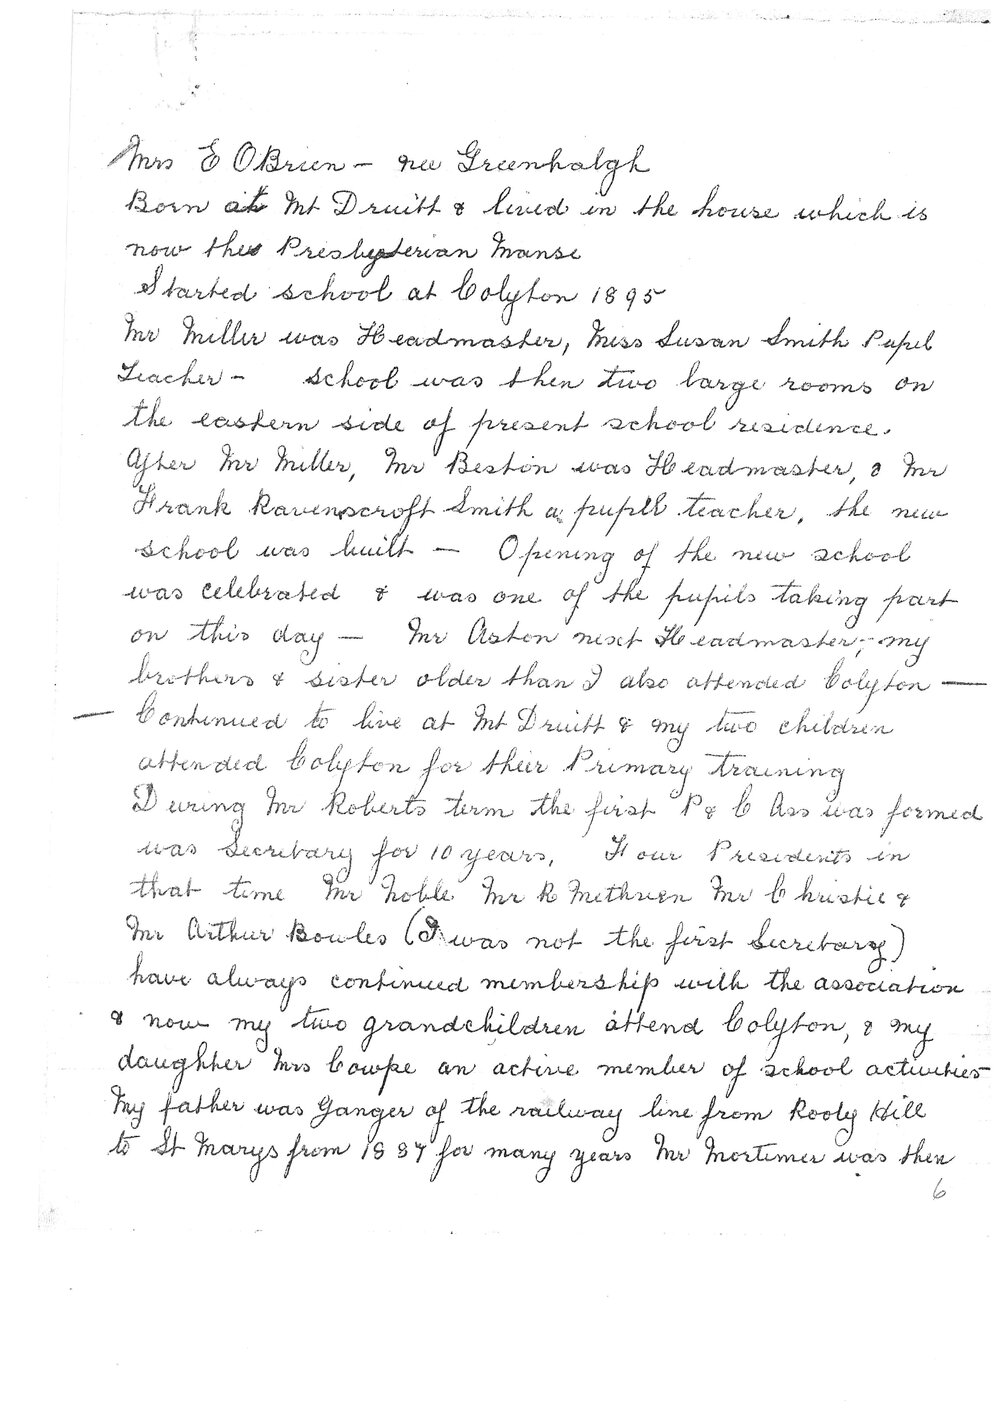 Mrs E OBrien - nee Greenhalgh
Born at Mt Druitt & lived in the house which is
now the Presbyterian Manse
Started school at Colyton 1895
Mr Miller was Headmaster, Miss Susan Smith Pupil
Teacher - school was then two large rooms on
the eastern side of present school residence.
After Mr Miller, Mr Beston was Headmaster, & Mr
Frank Ravenscroft Smith a pupil teacher, the new
school was built - Opening of the new school
was celebrated & was one of the pupils taking part
on this day - Mr Aston next Headmaster, - my
brothers & sister older than I also attended Colyton -
- Continued to live at Mt Druitt & my two children
attended Colyton for their Primary training
During Mr Roberts term the first P & C Ass was formed
was Secretary for 10 years, Four Presidents in
that time Mr Noble Mr R Methven Mr Christie &
Mr Arthur Bowles (I was not the first Secretary)
have always continued membership with the association
& now my two grandchildren attend Colyton, & my
daughter Mrs Cowpe an active member of school activities
My father was Ganger of the railway line from Rooty Hill
to St Marys from 1887 for many years Mr Mortimer was then
6